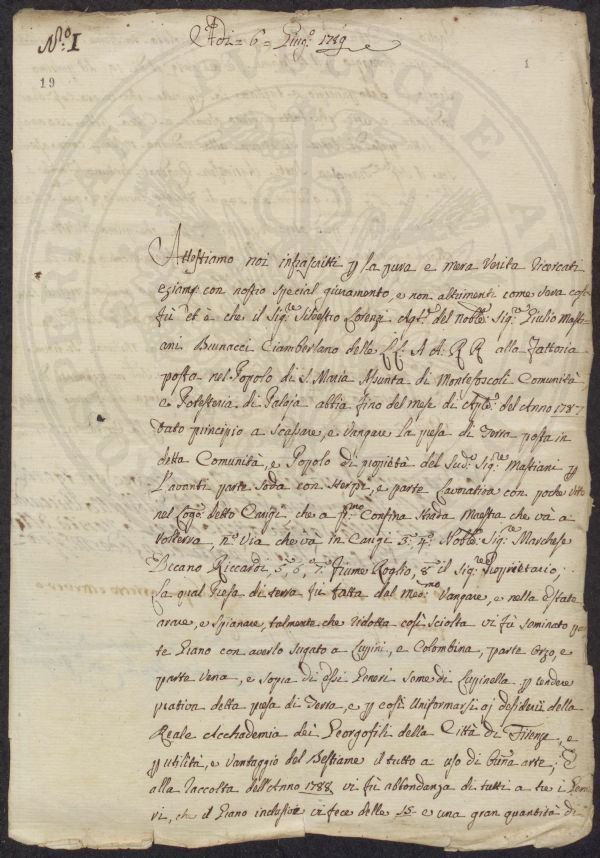 N:ro I
Adì = 6 = Giug:o 1789
19
1
Attestiamo noi infrascritti p la pura e mera Verità ricercati
eziam: con nostro special giuramento, e non altrimenti come sara cosi
fù et è che il Sig:re Silvestro Lorenzi Ag:te del nobb:e Sig:re Giulio Masti-
ani Brunacci Ciamberlano delle LL: A A: R R alla Fattoria
posta nel Popolo di S. Maria Assunta di Montefoscoli Comunità
e Potesteria di Palaja abbia fino del mese di Aple: del Anno 1787
dato principio a Scassare, e Vangare la presa di Terra posta in
detta Comunità, e Popolo di propietà del Sud:o Sig:re Mastiani p
l'avanti parte Soda con Sterpi, e parte Lavorativa con poche Viti
nel Luog:o detto Carigi, che a p:mo Confina Strada Maestra che và a
Volterra n:o Via che và in Carigi 3:o 4:o Nobb:e Sig:re Marchese
Riccardi, 5:o 6:o 7:o Fiume Roglio, 8:o il Sig:re Proprietario;
La qual Presa di terra fù fatta dal Med:mo Vangare, e nella Estate
arare, e Spianare, talmente che ridotta cosi sciolta vi fù seminato par
te Grano con averlo sugato a Lupini, e Colombina, parte Orzo, e
parte Vena, e sopra di essi Generi seme di Lupinella p rendere
prativa detta presa di Terra, e p cosi Uniformarsi aj desiderii della
Reale Acchademia dei Georgofili della Città di Firenze, e
p utilità, e Vantaggio del Bestiame il tutto a uso di buna arte, e
alla Raccolta dell'Anno 1788 vi fù abbondanza di tutti a tre i Gene
ri, che il Grano inclusive vi fece delle 15 e una gran quantità di